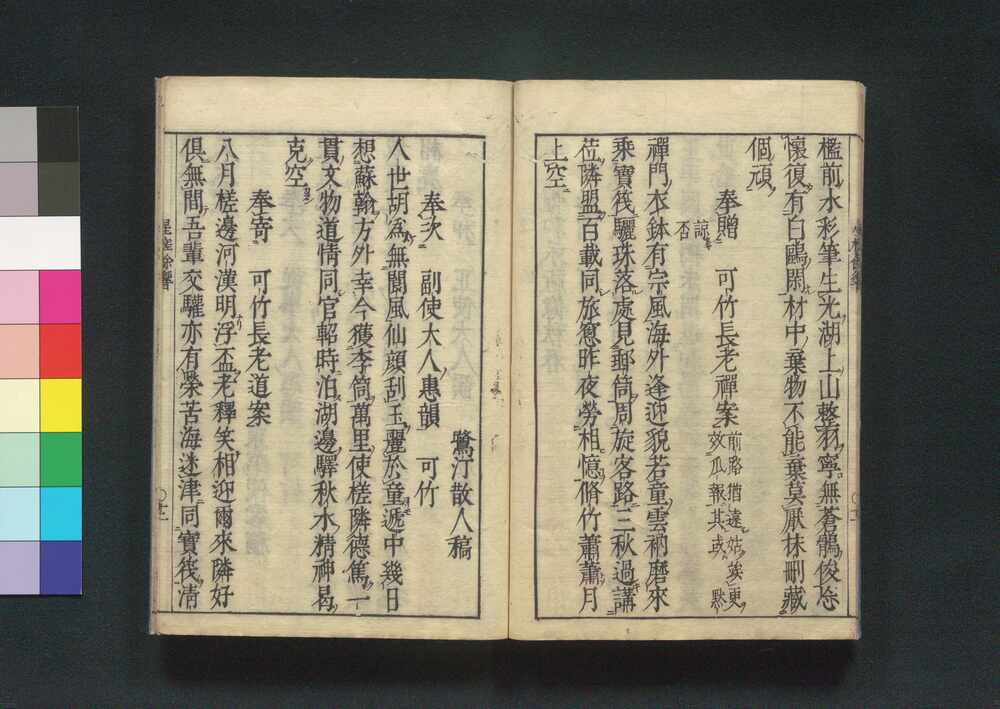 檻前水彩筆生光湖上山整羽寧無蒼鶻俊忘
懷復有白鷗閑材中棄物不能棄莫厭抹刪藏
個頑
奉贈　可竹長老禪案
前路猶遠姑俟更
效瓜報其或默
諒
否
禪門衣鉢有宗風海外逢迎貌若童雲衲磨來
乘寶筏驪珠落處見郵筒周旋客路三秋過講
莅隣盟百載同旅窓昨夜勞相憶脩竹蕭蕭月
上空
鷺汀散人稿
奉次　副使大人惠韻　可竹
人世胡為無閬風仙顔刮玉麗於童遞中幾日
想蘇翰方外幸今獲李筒萬里使槎隣德篤一
貫文物道情同官軺時泊湖邊驛秋水精神曷
克空
奉寄　可竹長老道案
八月槎邊河漢明浮盃老釋笑相迎爾來隣好
俱無間吾輩交驩亦有榮苦海迷津同寶筏清
星槎餘響